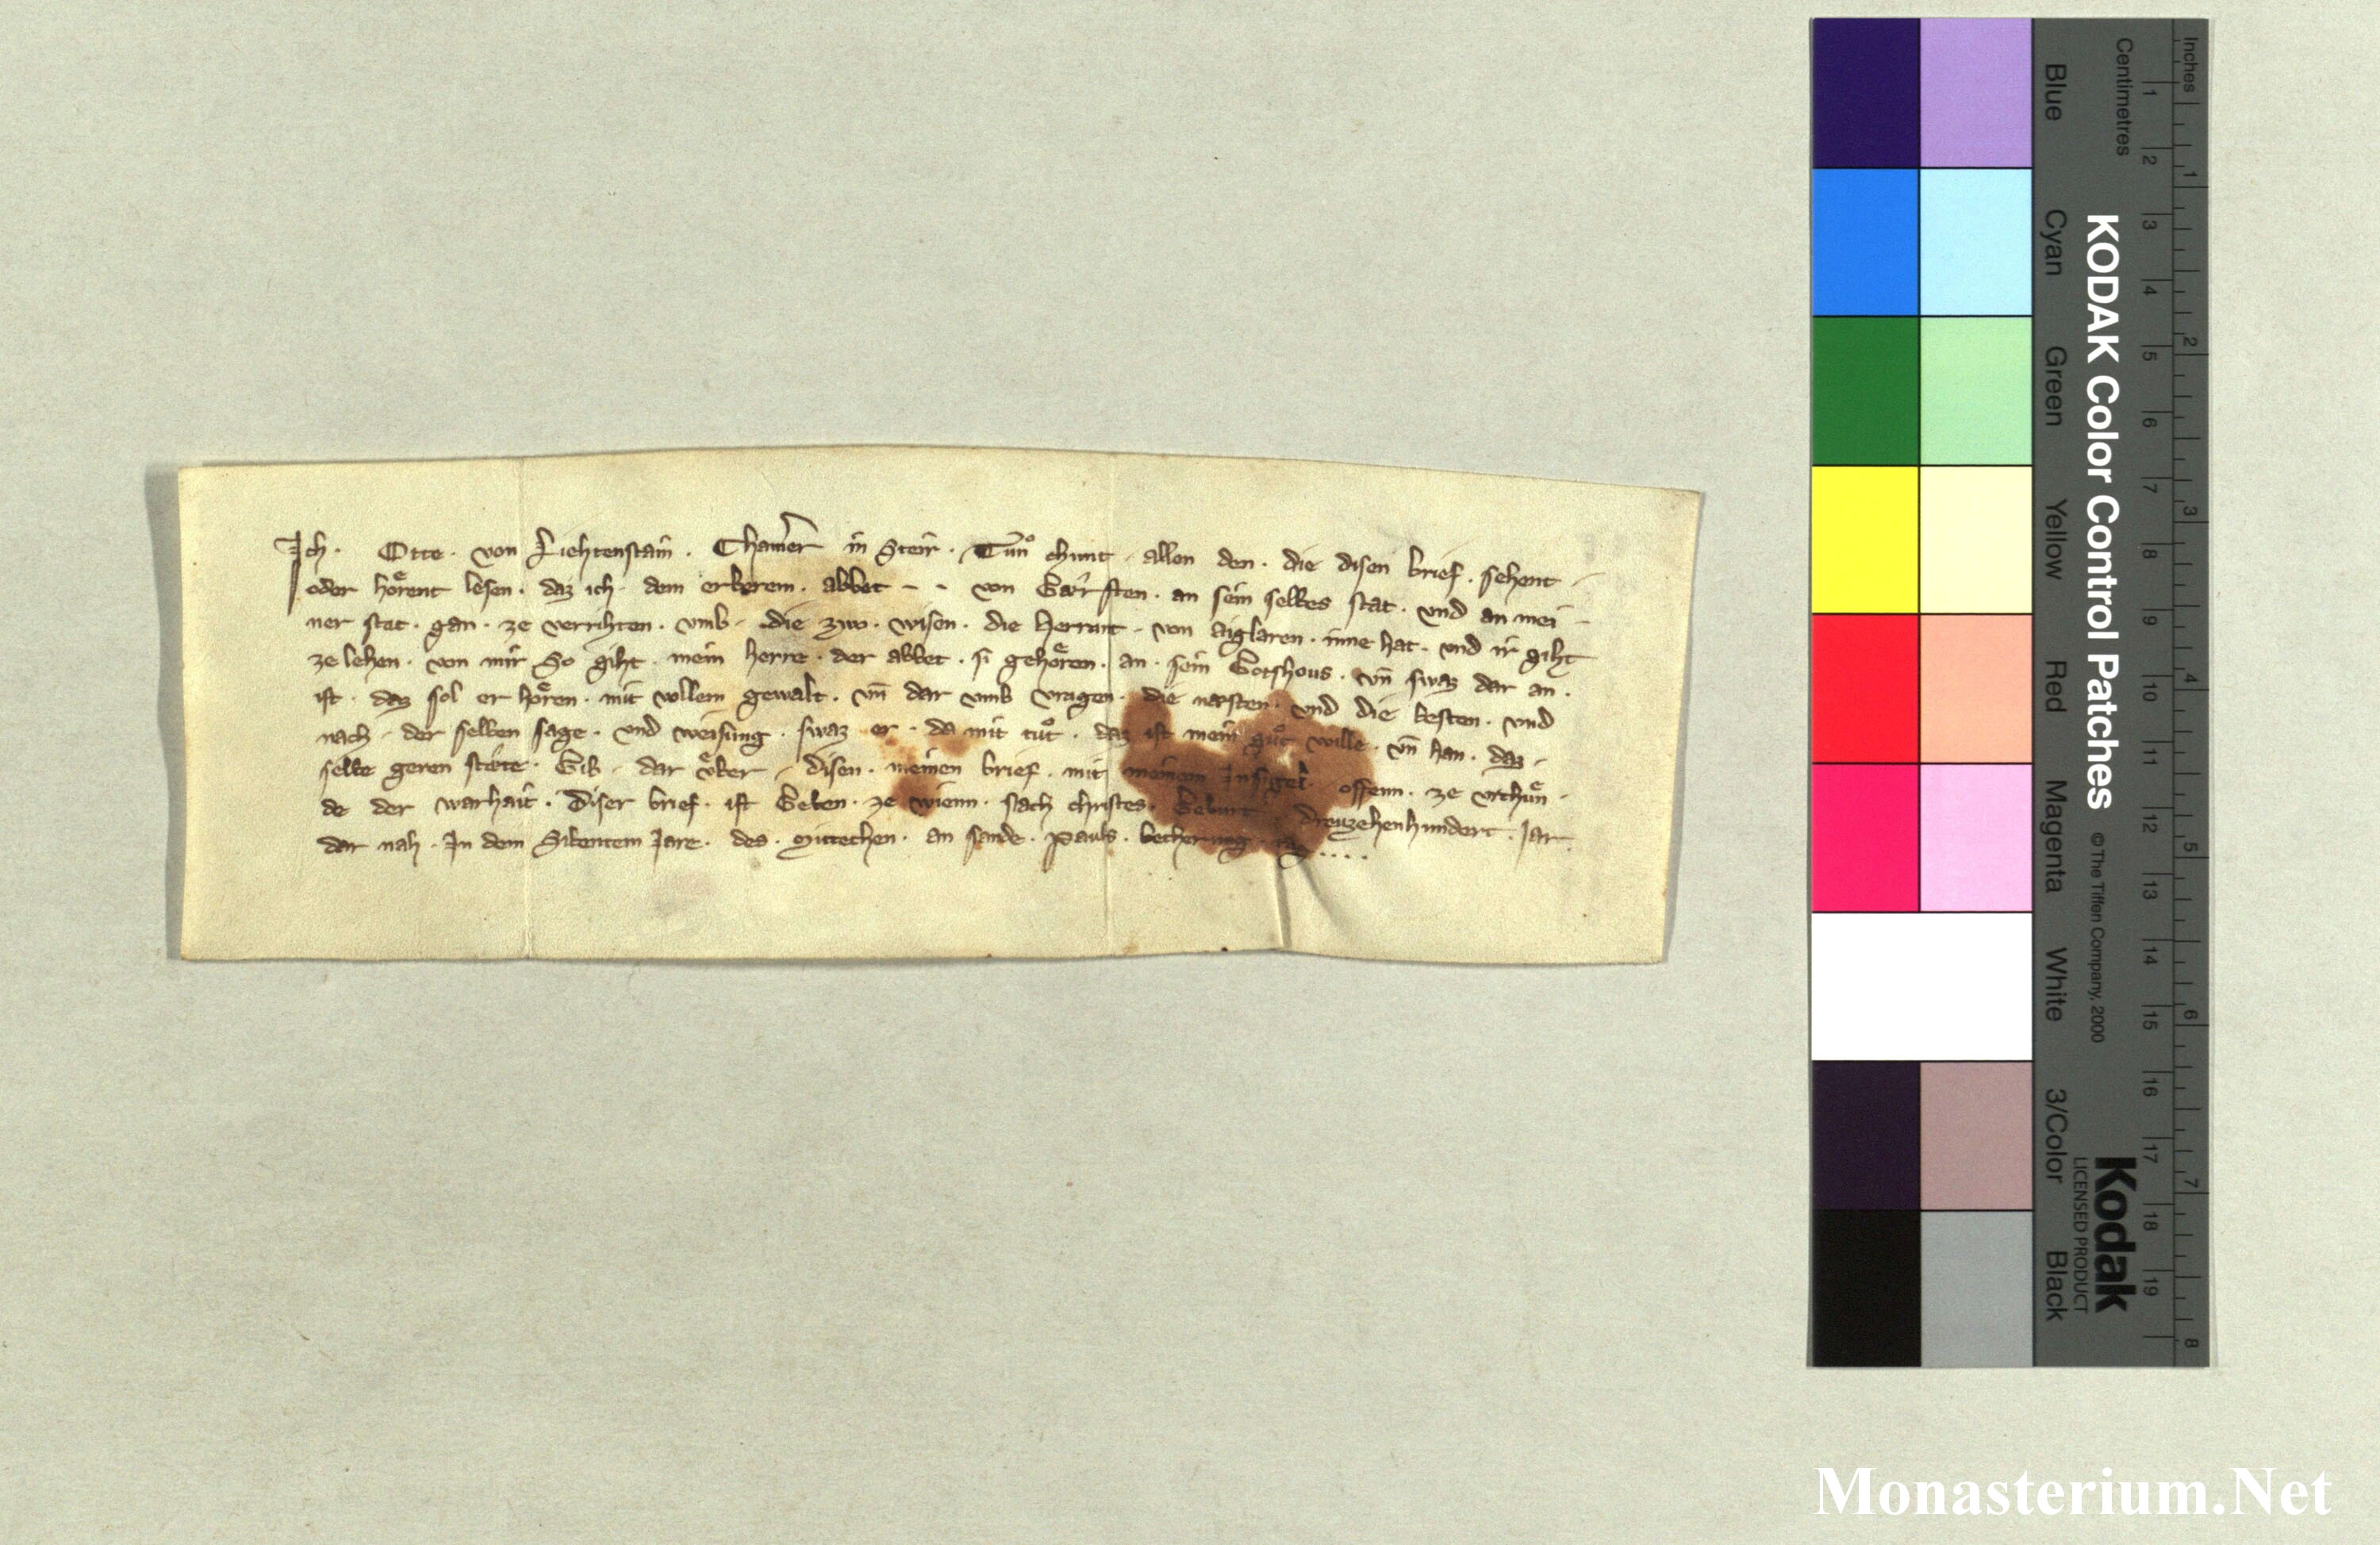 Ich · Otte · von Liehtenstain · Cham̄er in Steir · Tůn chunt · allen den · die disen brief · sehent ·
oder hoͤrent lesen · daz ich · dem erberem · abbet - - von Gaersten · an sein selbes stat · und an mei-
ner stat · gan · ze verrihten · umb · die zwo · wisen · die Herrant · von Aiglaren · inne hat · und ir giht
ze lehen · von mir So giht · mein herre · der abbet · si gehoͤren · an · sein Gotshous · vn̄ swaz dar an ·
ist · daz sol er hoͤren · mit vollem gewalt · vn̄ dar umb vragen · die naesten · und die besten · und
nach · der selben sage · und weisung · swaz er · da mit tůt · daz ist mein gůt wille · vn̄ han · daz ·
selbe geren staete · Gib · dar uͤber · disen · meinen brief · mit meinem Insigel · offenn · ze urchuͤn-
de der warhait · Diser brief · ist Geben · ze wienn · nach christes · Geburt · dreuzehenhundert · Jar ·
dar nah · In dem Sibentem Jare · des · mittechen · an sande · Pauls · becherung · tag · · · ·
KODAK Color Control Patches © The Tiffen Company, 2000 Kodak LICENSED PRODUCT
Inches 1 2 3 4 5 6 7 8
Centimetres 1 2 3 4 5 6 7 8 9 10 11 12 13 14 15 16 17 18 19
Blue Cyan Green Yellow Red Magenta White 3/Color Black
Monasterium.Net